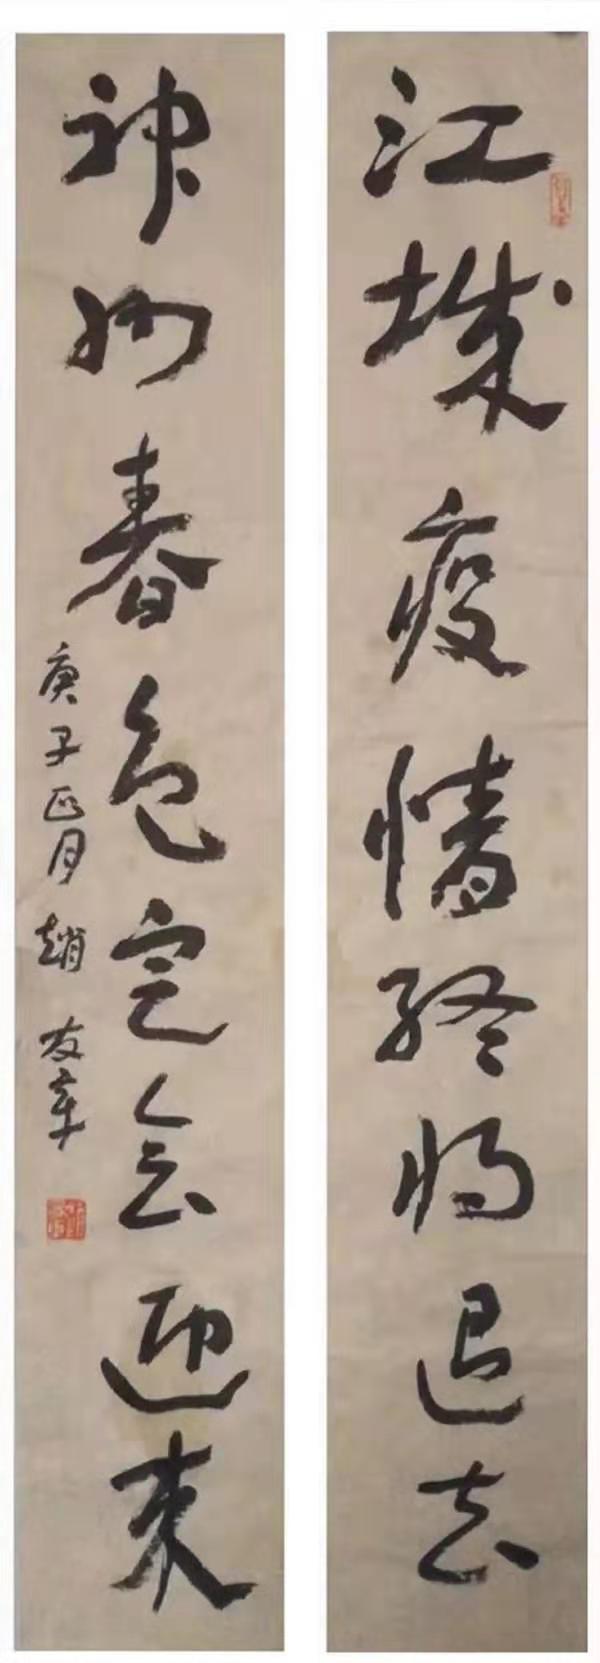 江城疫情终将退去
神州春色定会迎来
庚子正月趙友幸